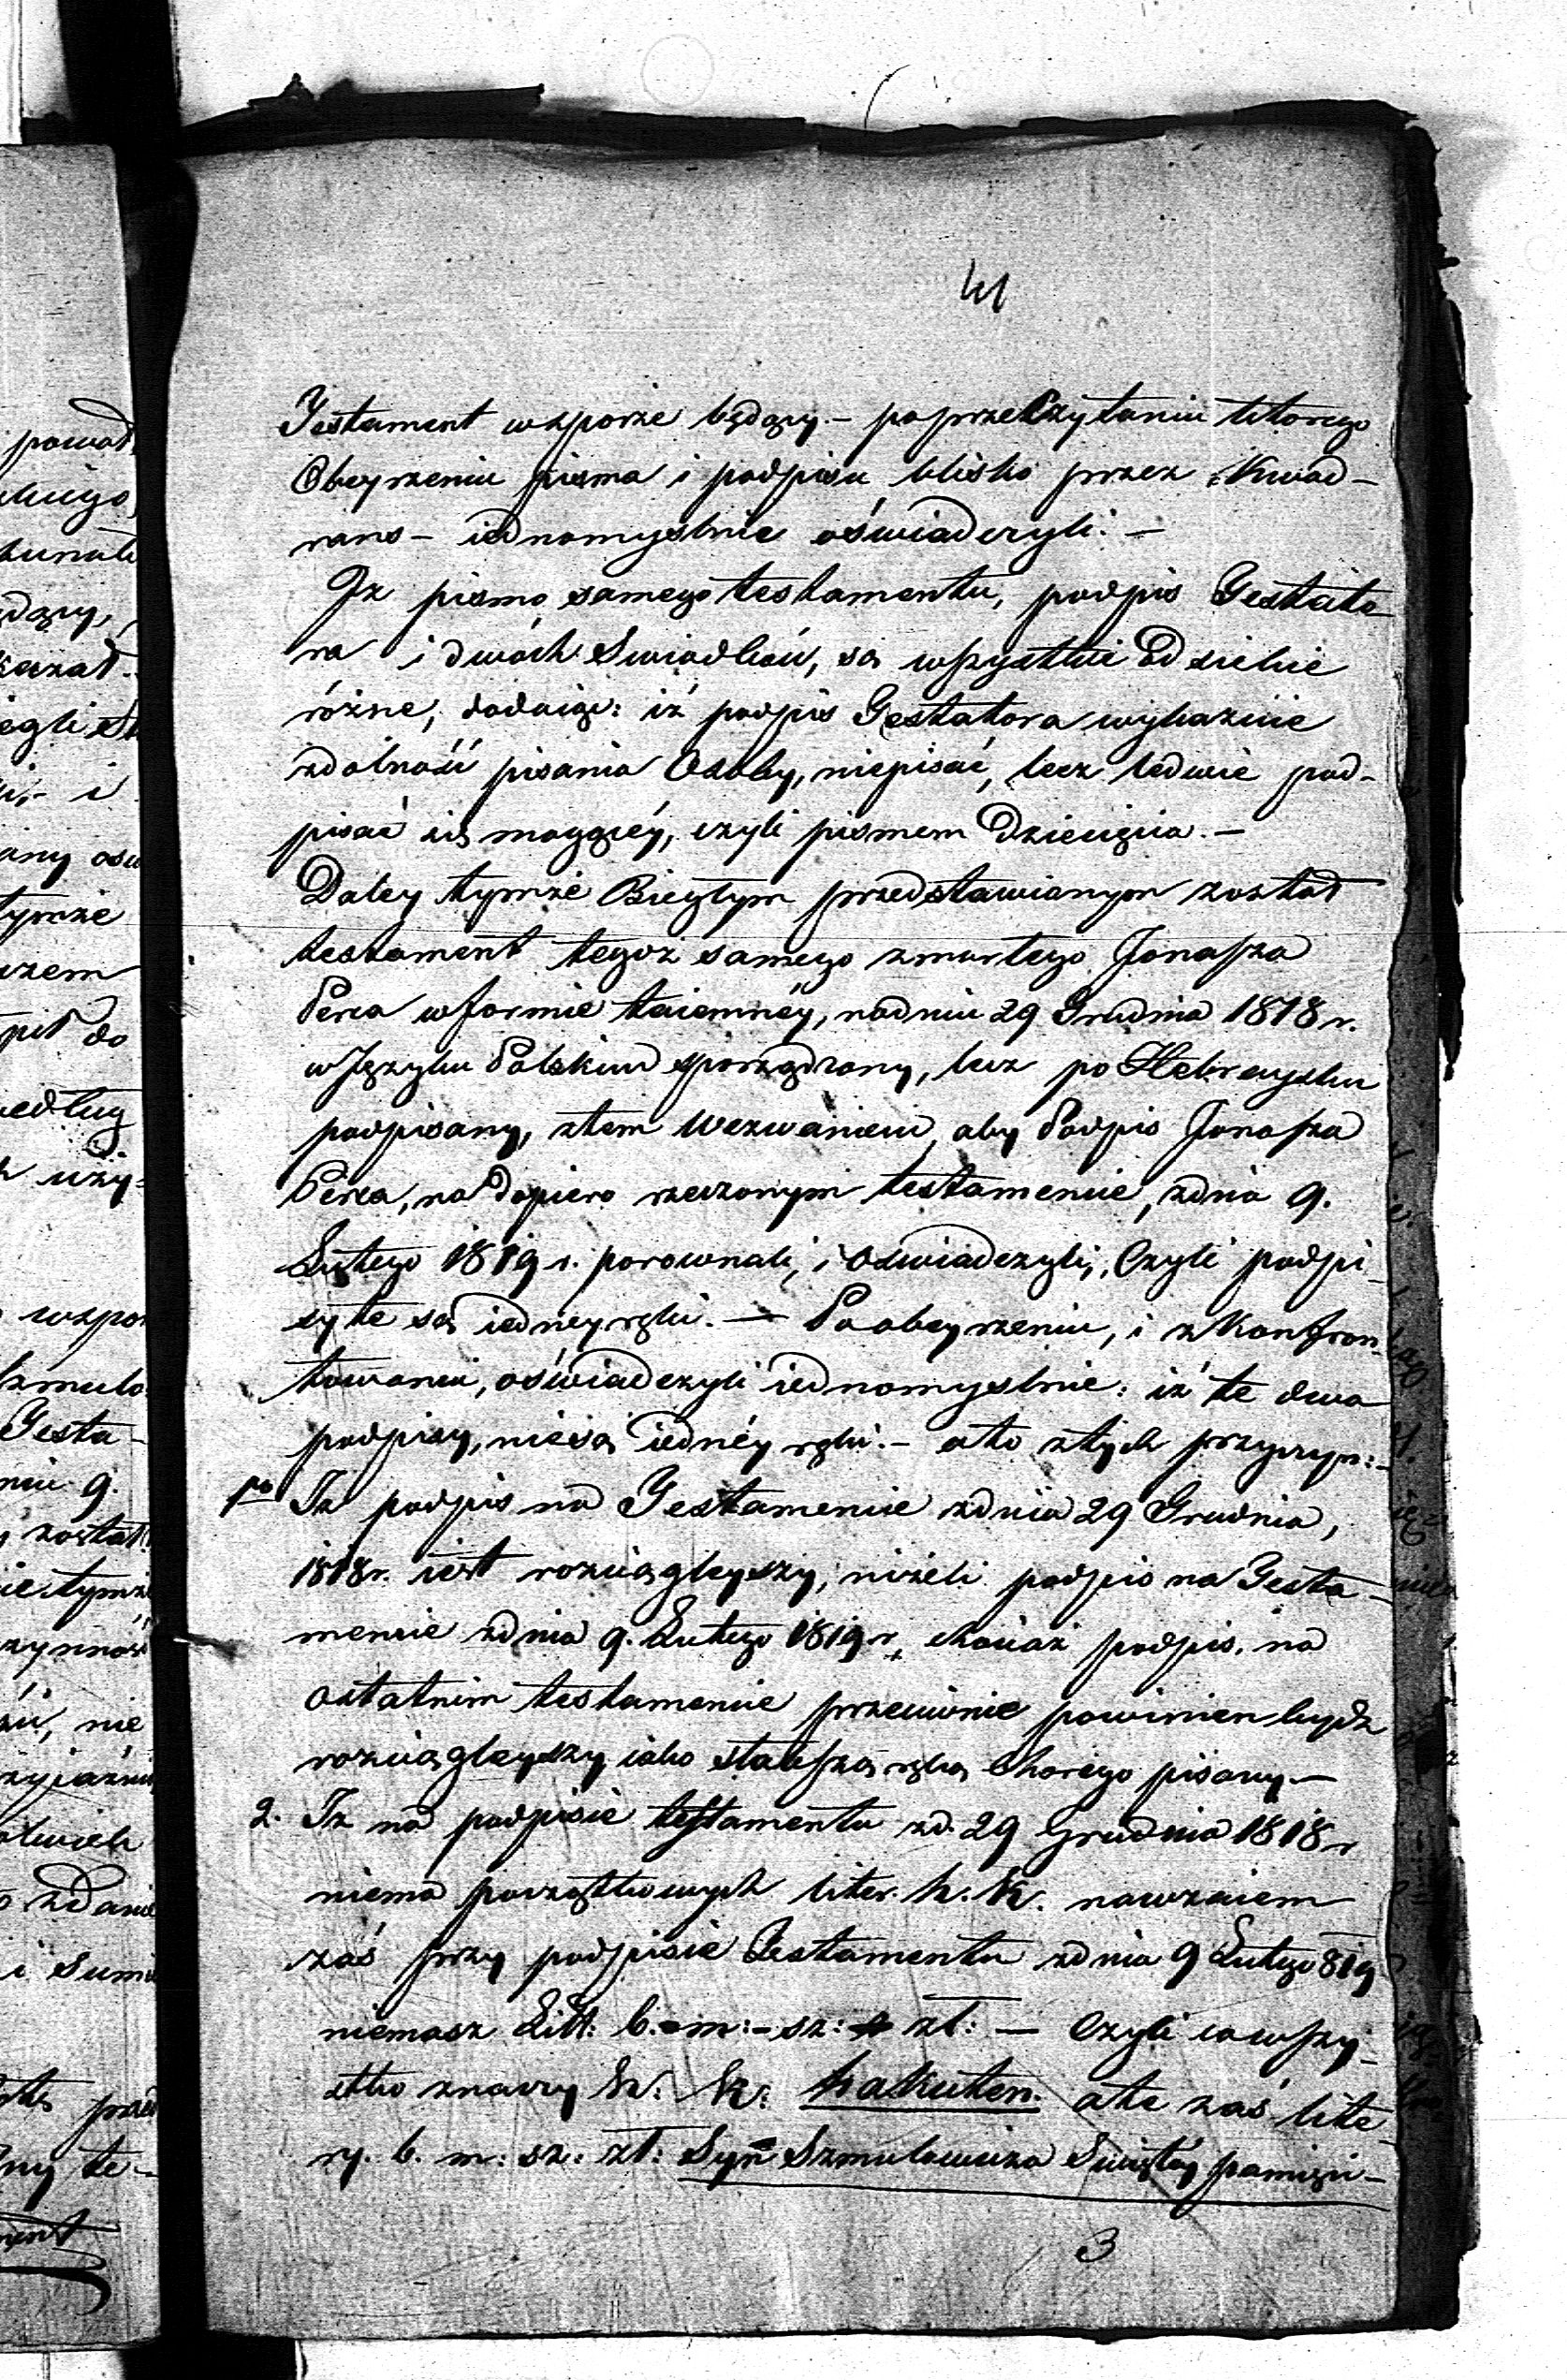 41
Testament wsporze będący. – poprzeczytaniu ktorego
Obeyrzeniu pisma i podpisu blisko przez Kwad-
rans – iednomyslnie oświadczyli: –
Iz pismo samego testamentu, podpis Testato
ra i dwóch Swiadków, są wszystkie Oddzielnie
różne, dodaiąc: iż podpis Testatora wykazuie
zdolność pisania Osoby, niepisać, lecz ledwie pod-
pisać się mogącéy, czyli pismem Dziecięcia. –
Daley tymże Biegłym przedstawionym został
testament tegoż samego zmarłego Jonasza
Perca wformie taiemnéy, nadniu 29 Grudnia 1818 r.
wJęzyku Polskim sporządzony, lecz po Hebreysku
podpisany, ztem wezwaniem, aby Podpis Jonasza
Perca, na dopiero rzeczonym testamencie, zdnia 9.
Lutego 1819 r. porownali, i oswiadczyli, Czyli podpi
sy te są iedney ręki. – Po obeyrzeniu, i zKonfron-
towaniu, oświadczyli iednomyslnie: iż te dwa
podpisy, niesą iednéy ręki. – ato ztych przyczyn: –
1o Iz podpis na Testamencie zdnia 29 Grudnia,
1818 r. iest rozciągleyszy, niżeli podpis na Testa-
mencie zdnia 9. Lutego 1819 r, chociaż podpis, na
ostatnim testamencie przeciwnie powinien bydz
rozciągleyszy iako słabszą ręką Chorego pisany. –
2. Iz na podpisie testamentu zd. 29 Grudnia 1818 r
niema początkowych liter. k. k. nawzaiem
zaś przy podpisie Testamentu zdnia 9 Lutego 819
niemasz Litt: b. m: – sz: zł: – Czyli cowszy-
stko znaczy k: k: hakuten. ate zaś lite
ry. b. m: sz: zł: Syn Szmulowicza Swiętéy pamięci –
3